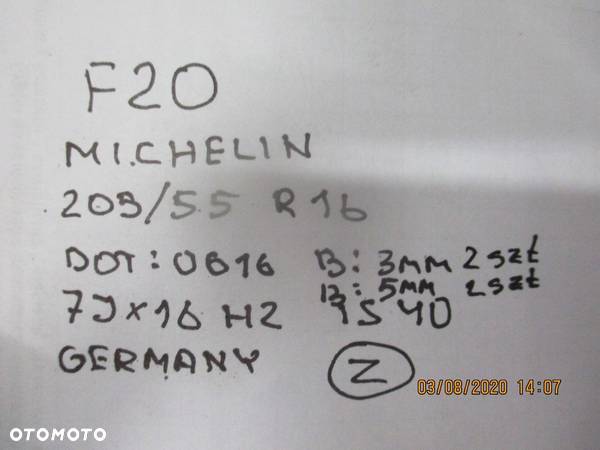 F20
MICHELIN
205/55 R 16
DOT: 0616 B: 3mm 2 szt
B: 5mm 2 szt
7J x 16 H2 IS 40
GERMANY Z
03/08/2020 14:07
OTOMOTO